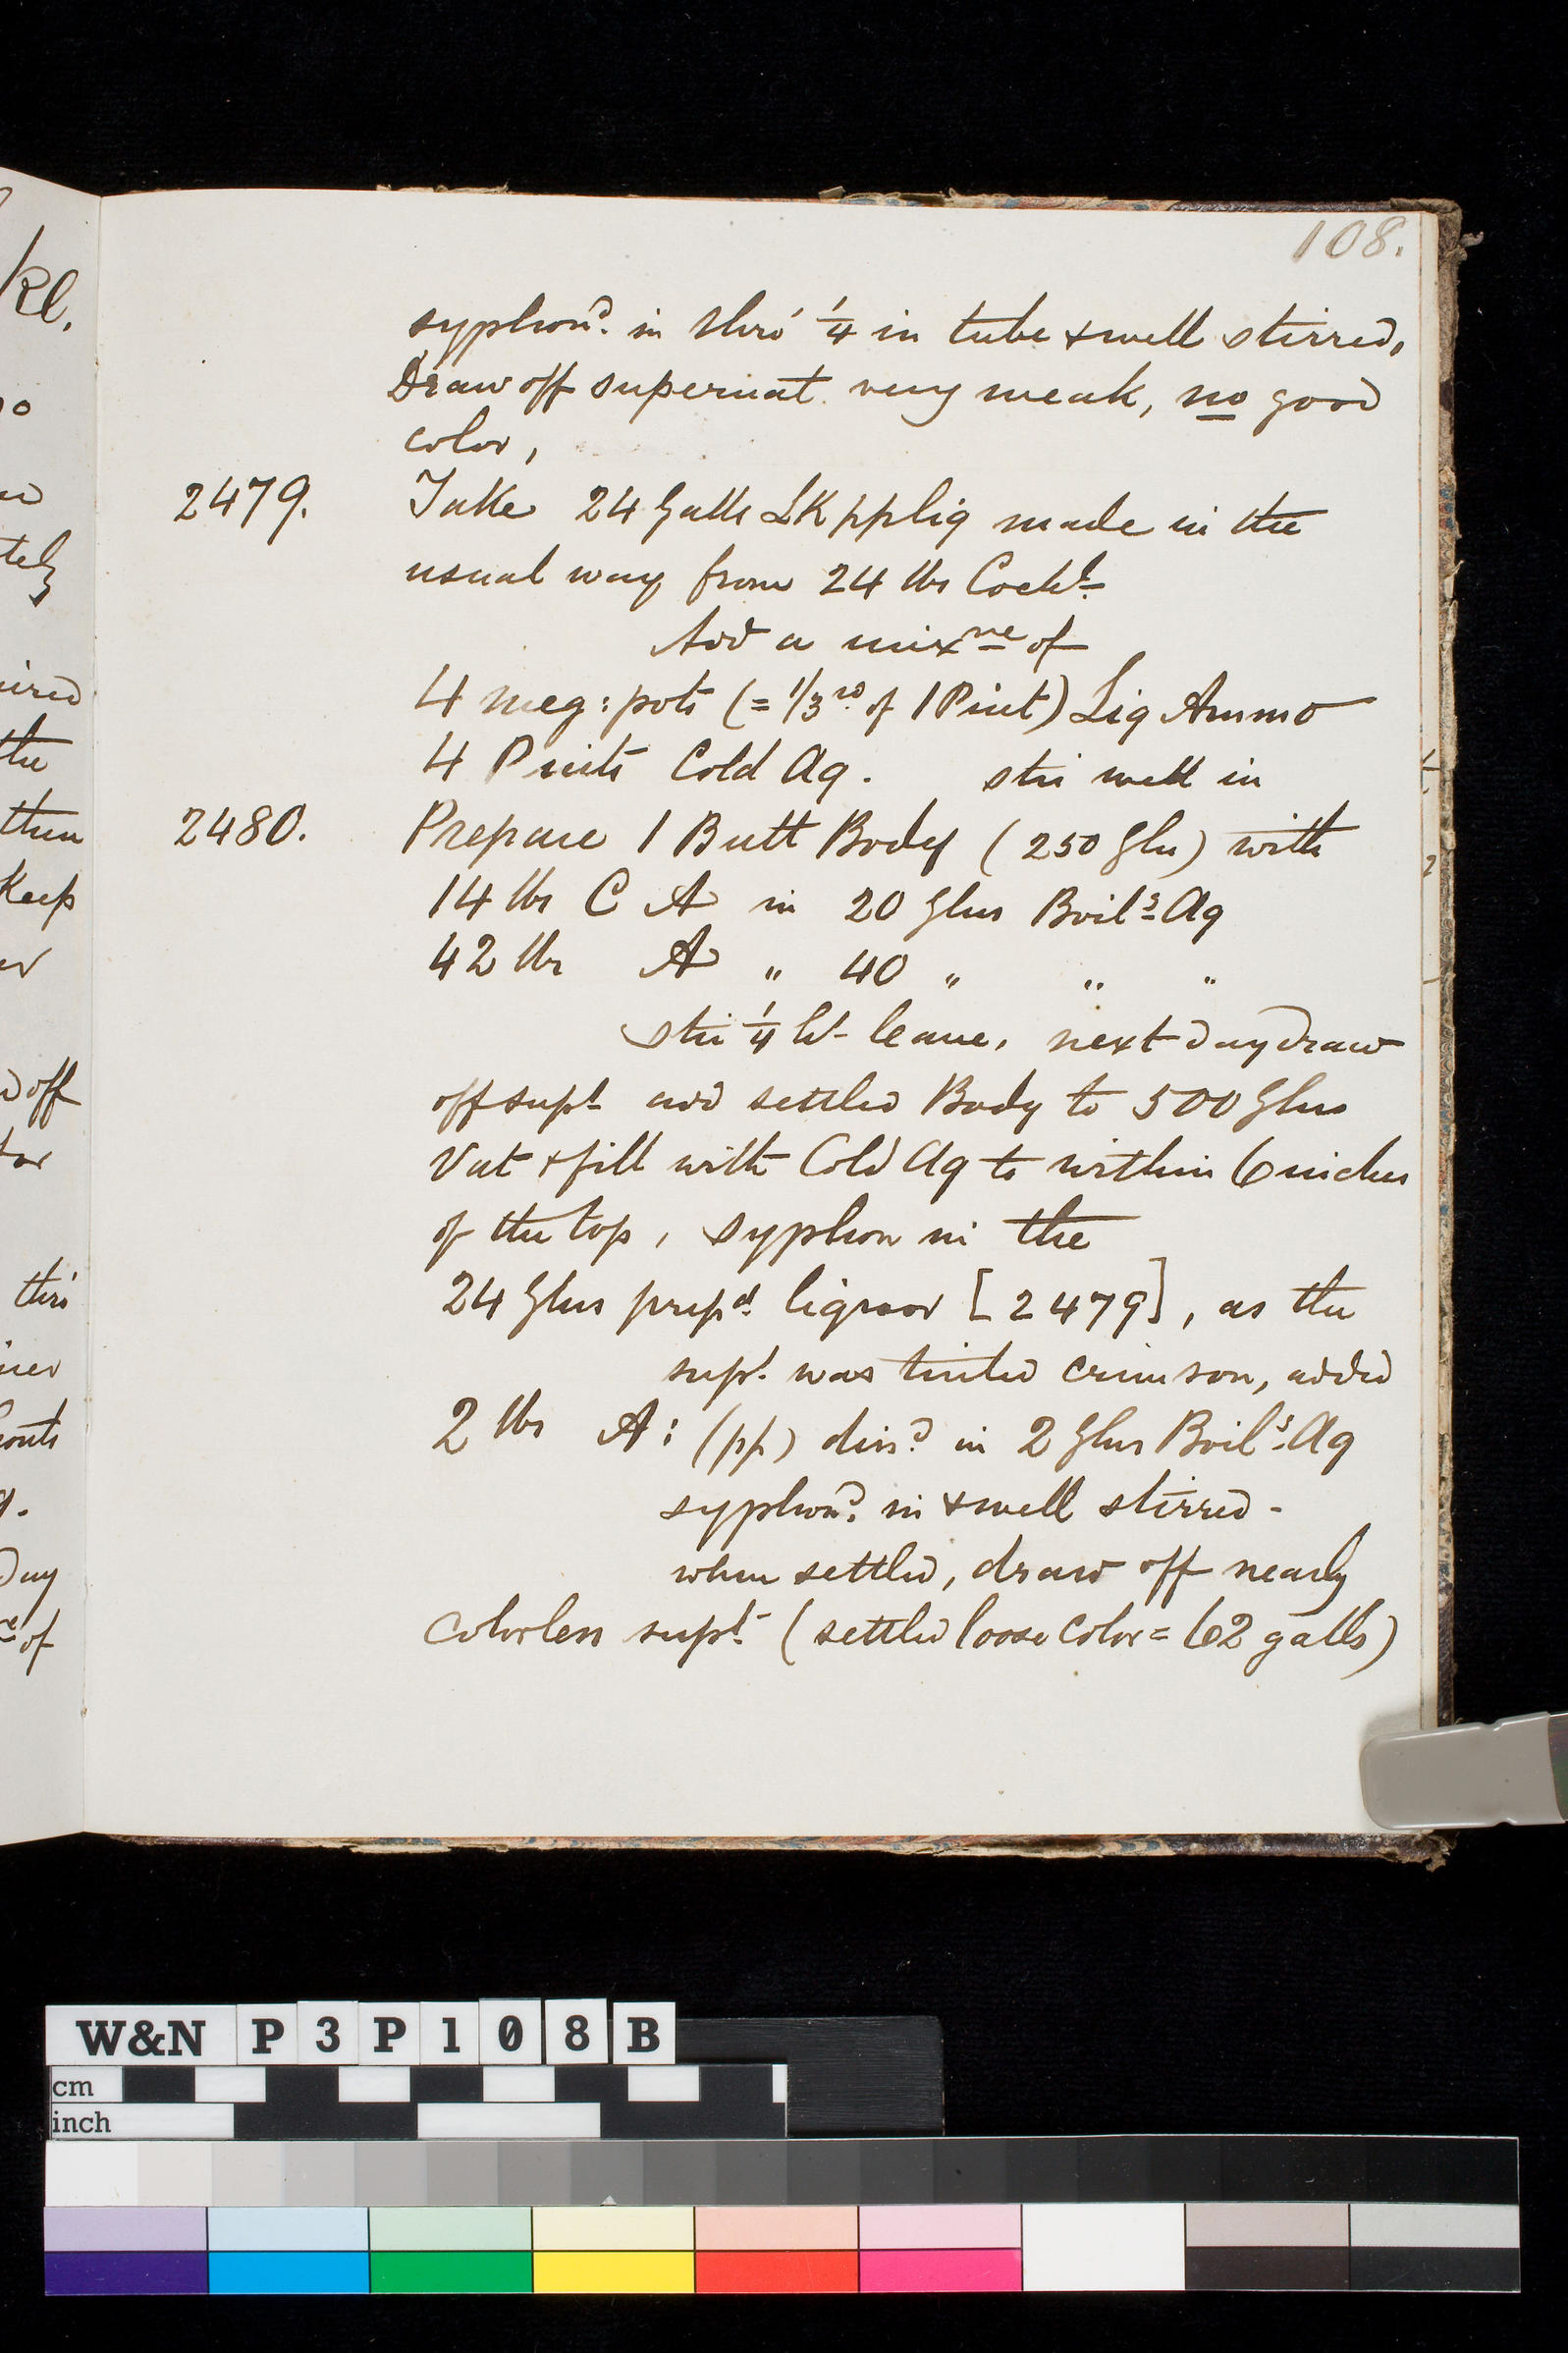 108.
syphond. in thro' 1/4 in tube & well stirred,
Draw off supernat. very weak, no good
color,
2479. Take 24 Galls LK pp liq made in the
usual way from 24 lbs Cochl.
Add a mixre of
4 meg: pots (= 1/3rd of 1 Pint) Liq Ammo
4 Pints Cold Aq. stir well in
2480. Prepare 1 Butt Body (250 Glls) with
14 lbs C A in 20 Glns Boilg Aq
42 lbs A " 40 " " "
stir 1/4 hr leave, next day draw
off supt. add settled Body to 500 Glns
Vat & fill with Cold Aq to within 6 inches
of the top, syphon in the
24 Glns prepd. liquor [2479], as the
supt. was tinted crimson, added
2 lbs A: (pp) dissd. in 2 Glns Boilg. Aq
syphond. in & well stirred -
when settled, draw off nearly
colorless supt. (settled loose color = 62 galls)
ke.
the
then
Keep
off
thro'
Day
of
W&N P3P108B
cm
inch